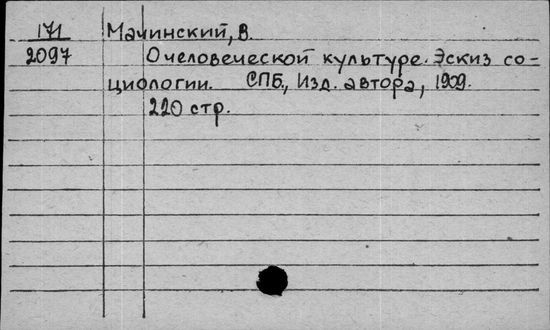 171 Мачинский, В.
2097 О человеческой культуре. Эскиз со-
циологии. СПБ., Изд. автора, 1909.
220 стр.